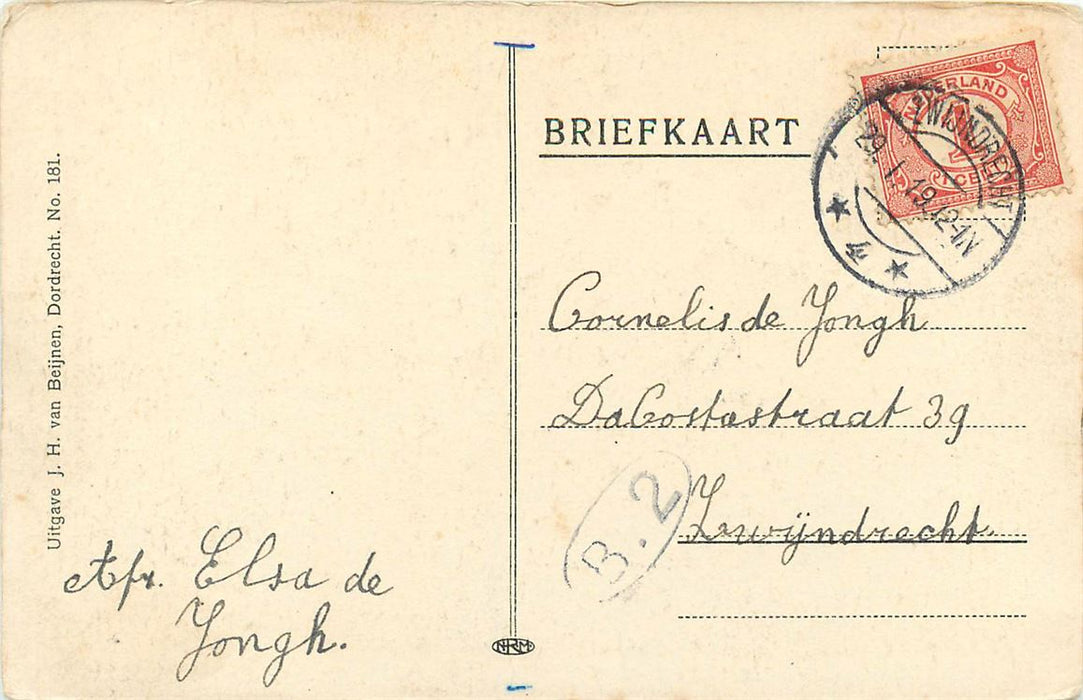 Uitgave J. H. van Beijnen, Dordrecht. No. 181.
Afz. Elsa de
Jongh.
BRIEFKAART
NEDERLAND
1
1 CENT
ZWIJNDRECHT
29. 1. 19. 12-1N
Cornelis de Jongh
DaCostastraat 39
Zwijndrecht.
B. 2
NRM